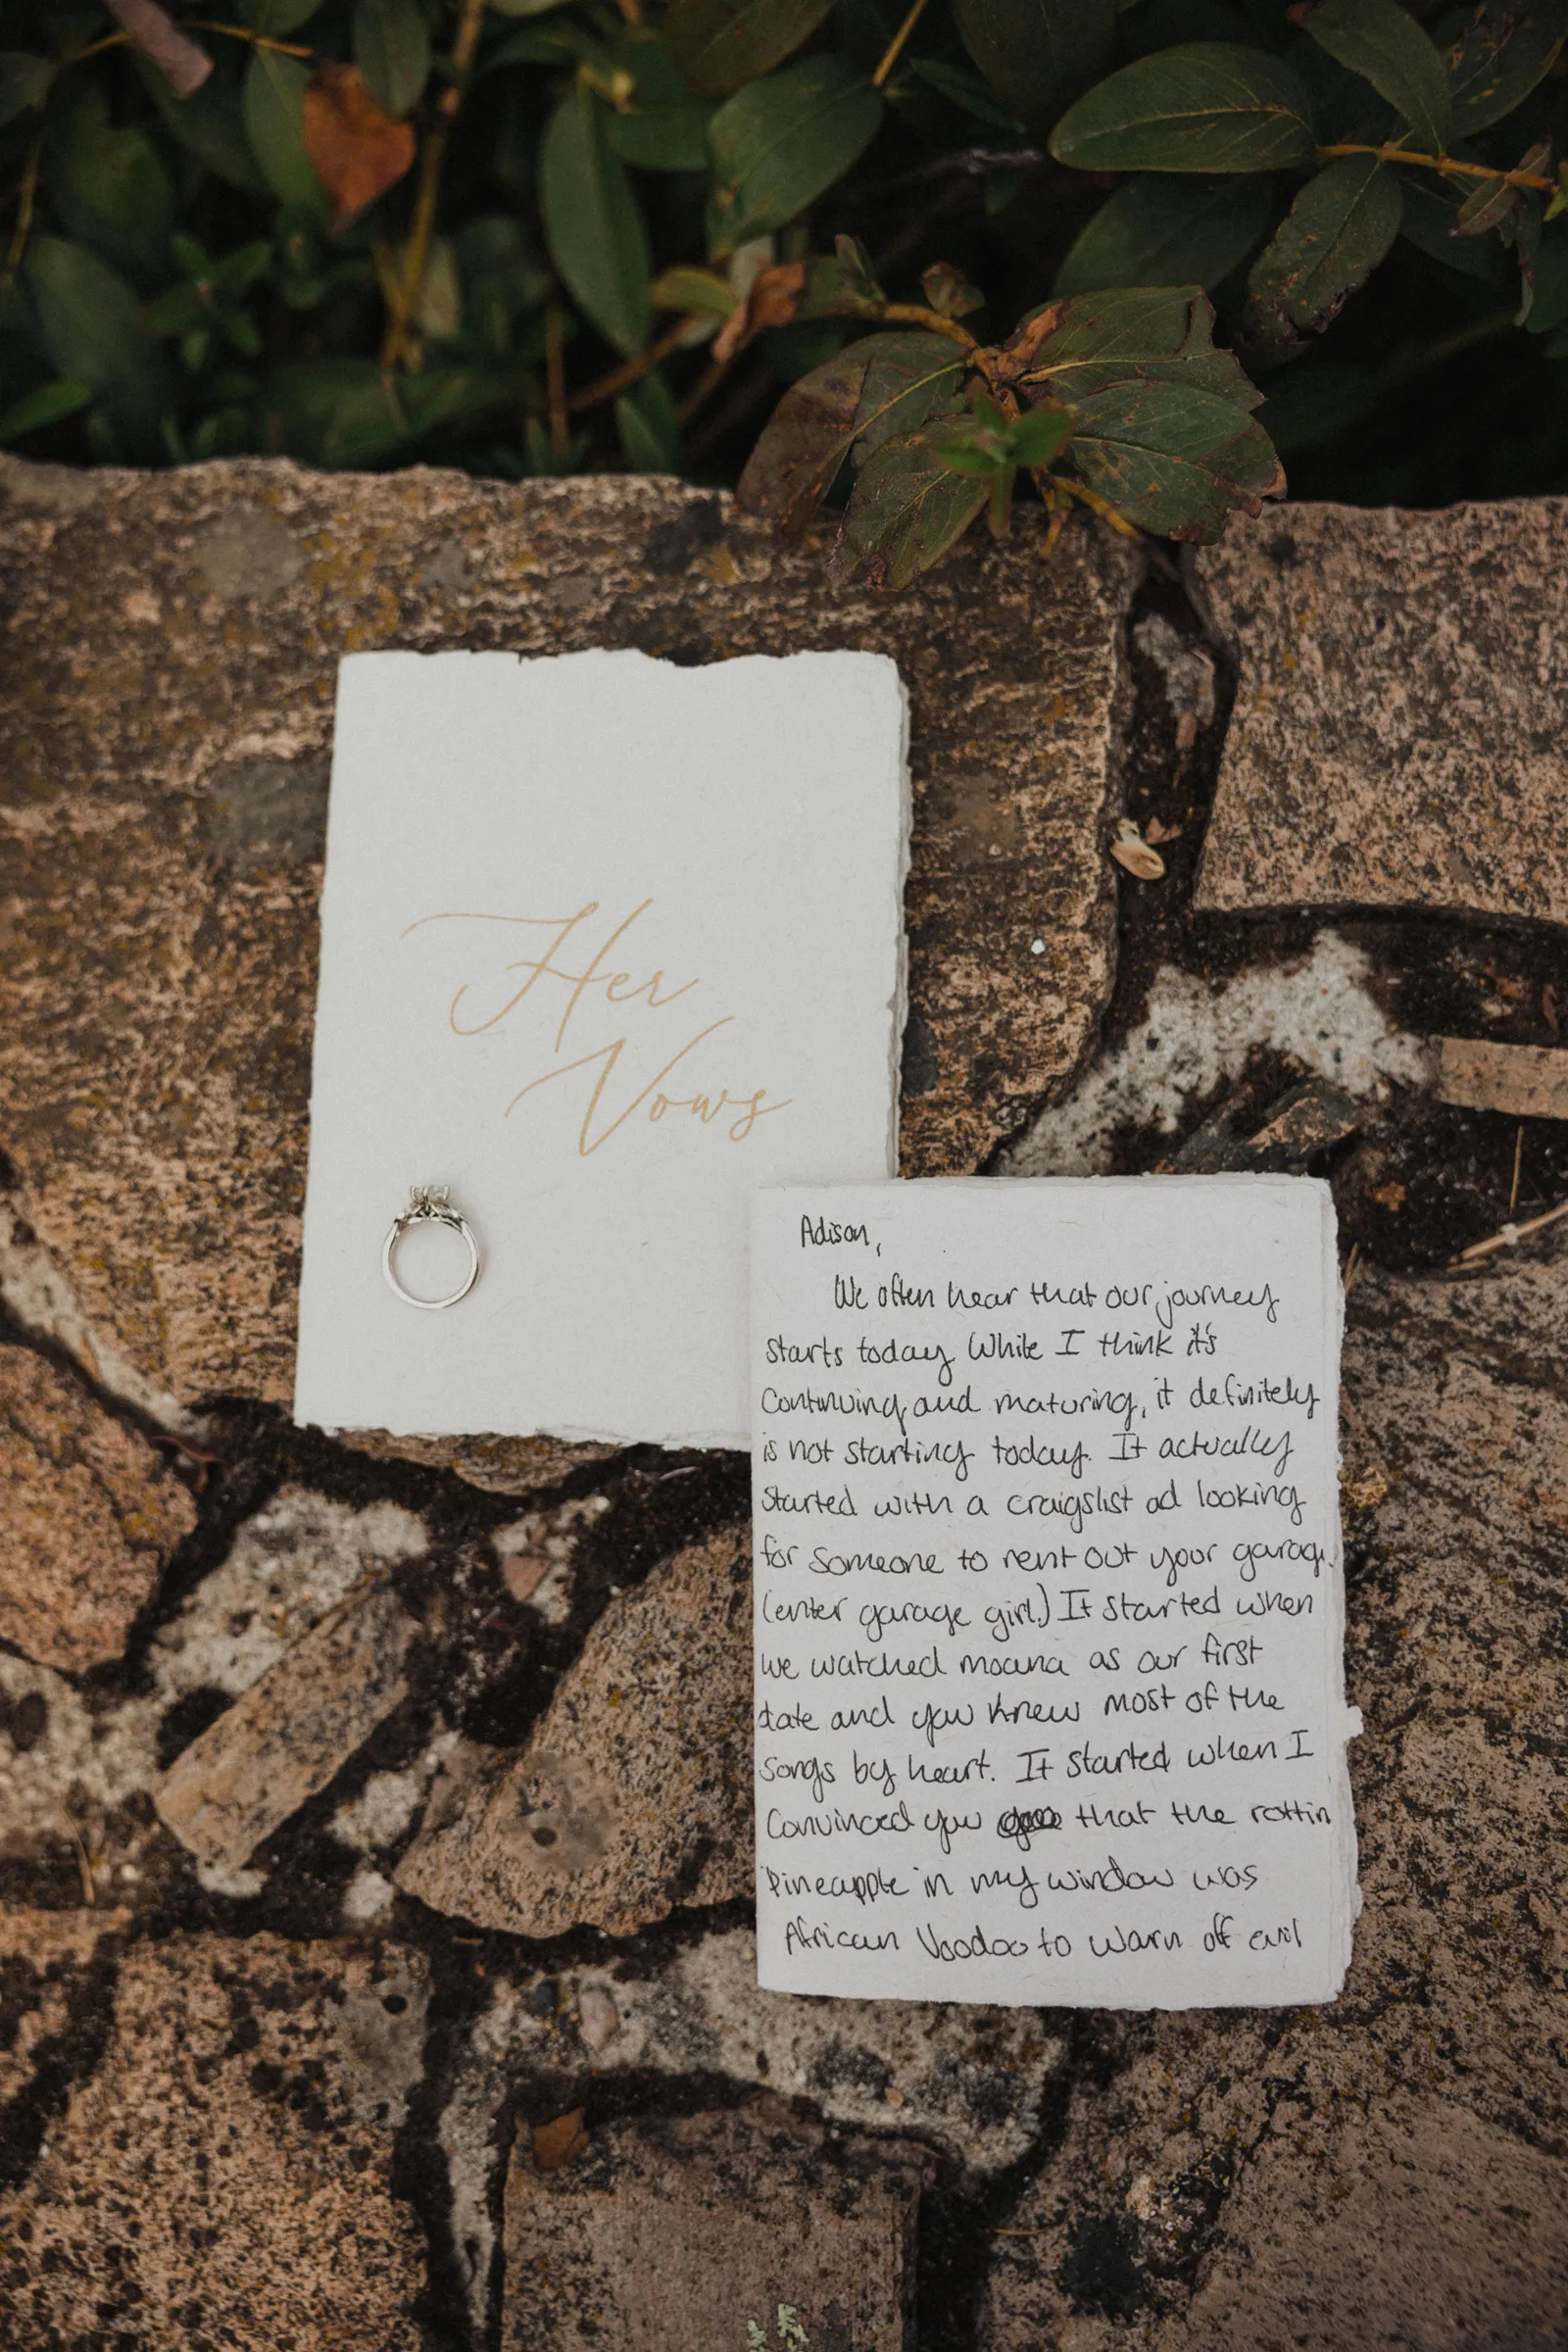 Her
Vows
Adison,
We often hear that our journey
starts today. While I think it's
continuing and maturing, it definitely
is not starting today. It actually
started with a craigslist ad looking
for someone to rent out your garage.
(enter garage girl.) It started when
we watched moana as our first
date and you knew most of the
songs by heart. It started when I
convinced you that the rottin
pineapple in my window was
African Voodoo to warn off evil